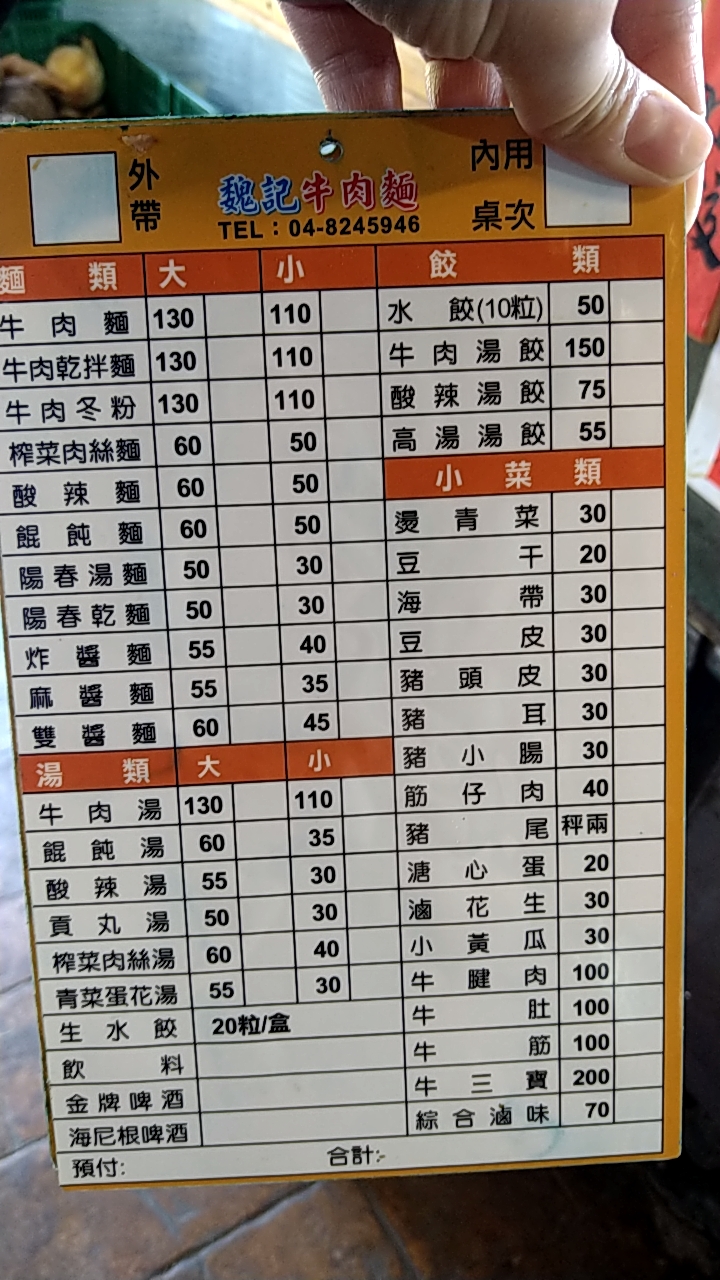 外帶
魏記牛肉麵
TEL：04-8245946
內用
桌次
麵類 大 小
牛肉麵 130 110
牛肉乾拌麵 130 110
牛肉冬粉 130 110
榨菜肉絲麵 60 50
酸辣麵 60 50
餛飩麵 60 50
陽春湯麵 50 30
陽春乾麵 50 30
炸醬麵 55 40
麻醬麵 55 35
雙醬麵 60 45
湯類 大 小
牛肉湯 130 110
餛飩湯 60 35
酸辣湯 55 30
貢丸湯 50 30
榨菜肉絲湯 60 40
青菜蛋花湯 55 30
生水餃 20粒/盒
飲料
金牌啤酒
海尼根啤酒
餃類
水餃(10粒) 50
牛肉湯餃 150
酸辣湯餃 75
高湯湯餃 55
小菜類
燙青菜 30
豆干 20
海帶 30
豆皮 30
豬頭皮 30
豬耳 30
豬小腸 30
筋仔肉 40
豬尾 秤兩
溏心蛋 20
滷花生 30
小黃瓜 30
牛腱肉 100
牛肚 100
牛筋 100
牛三寶 200
綜合滷味 70
預付: 合計: